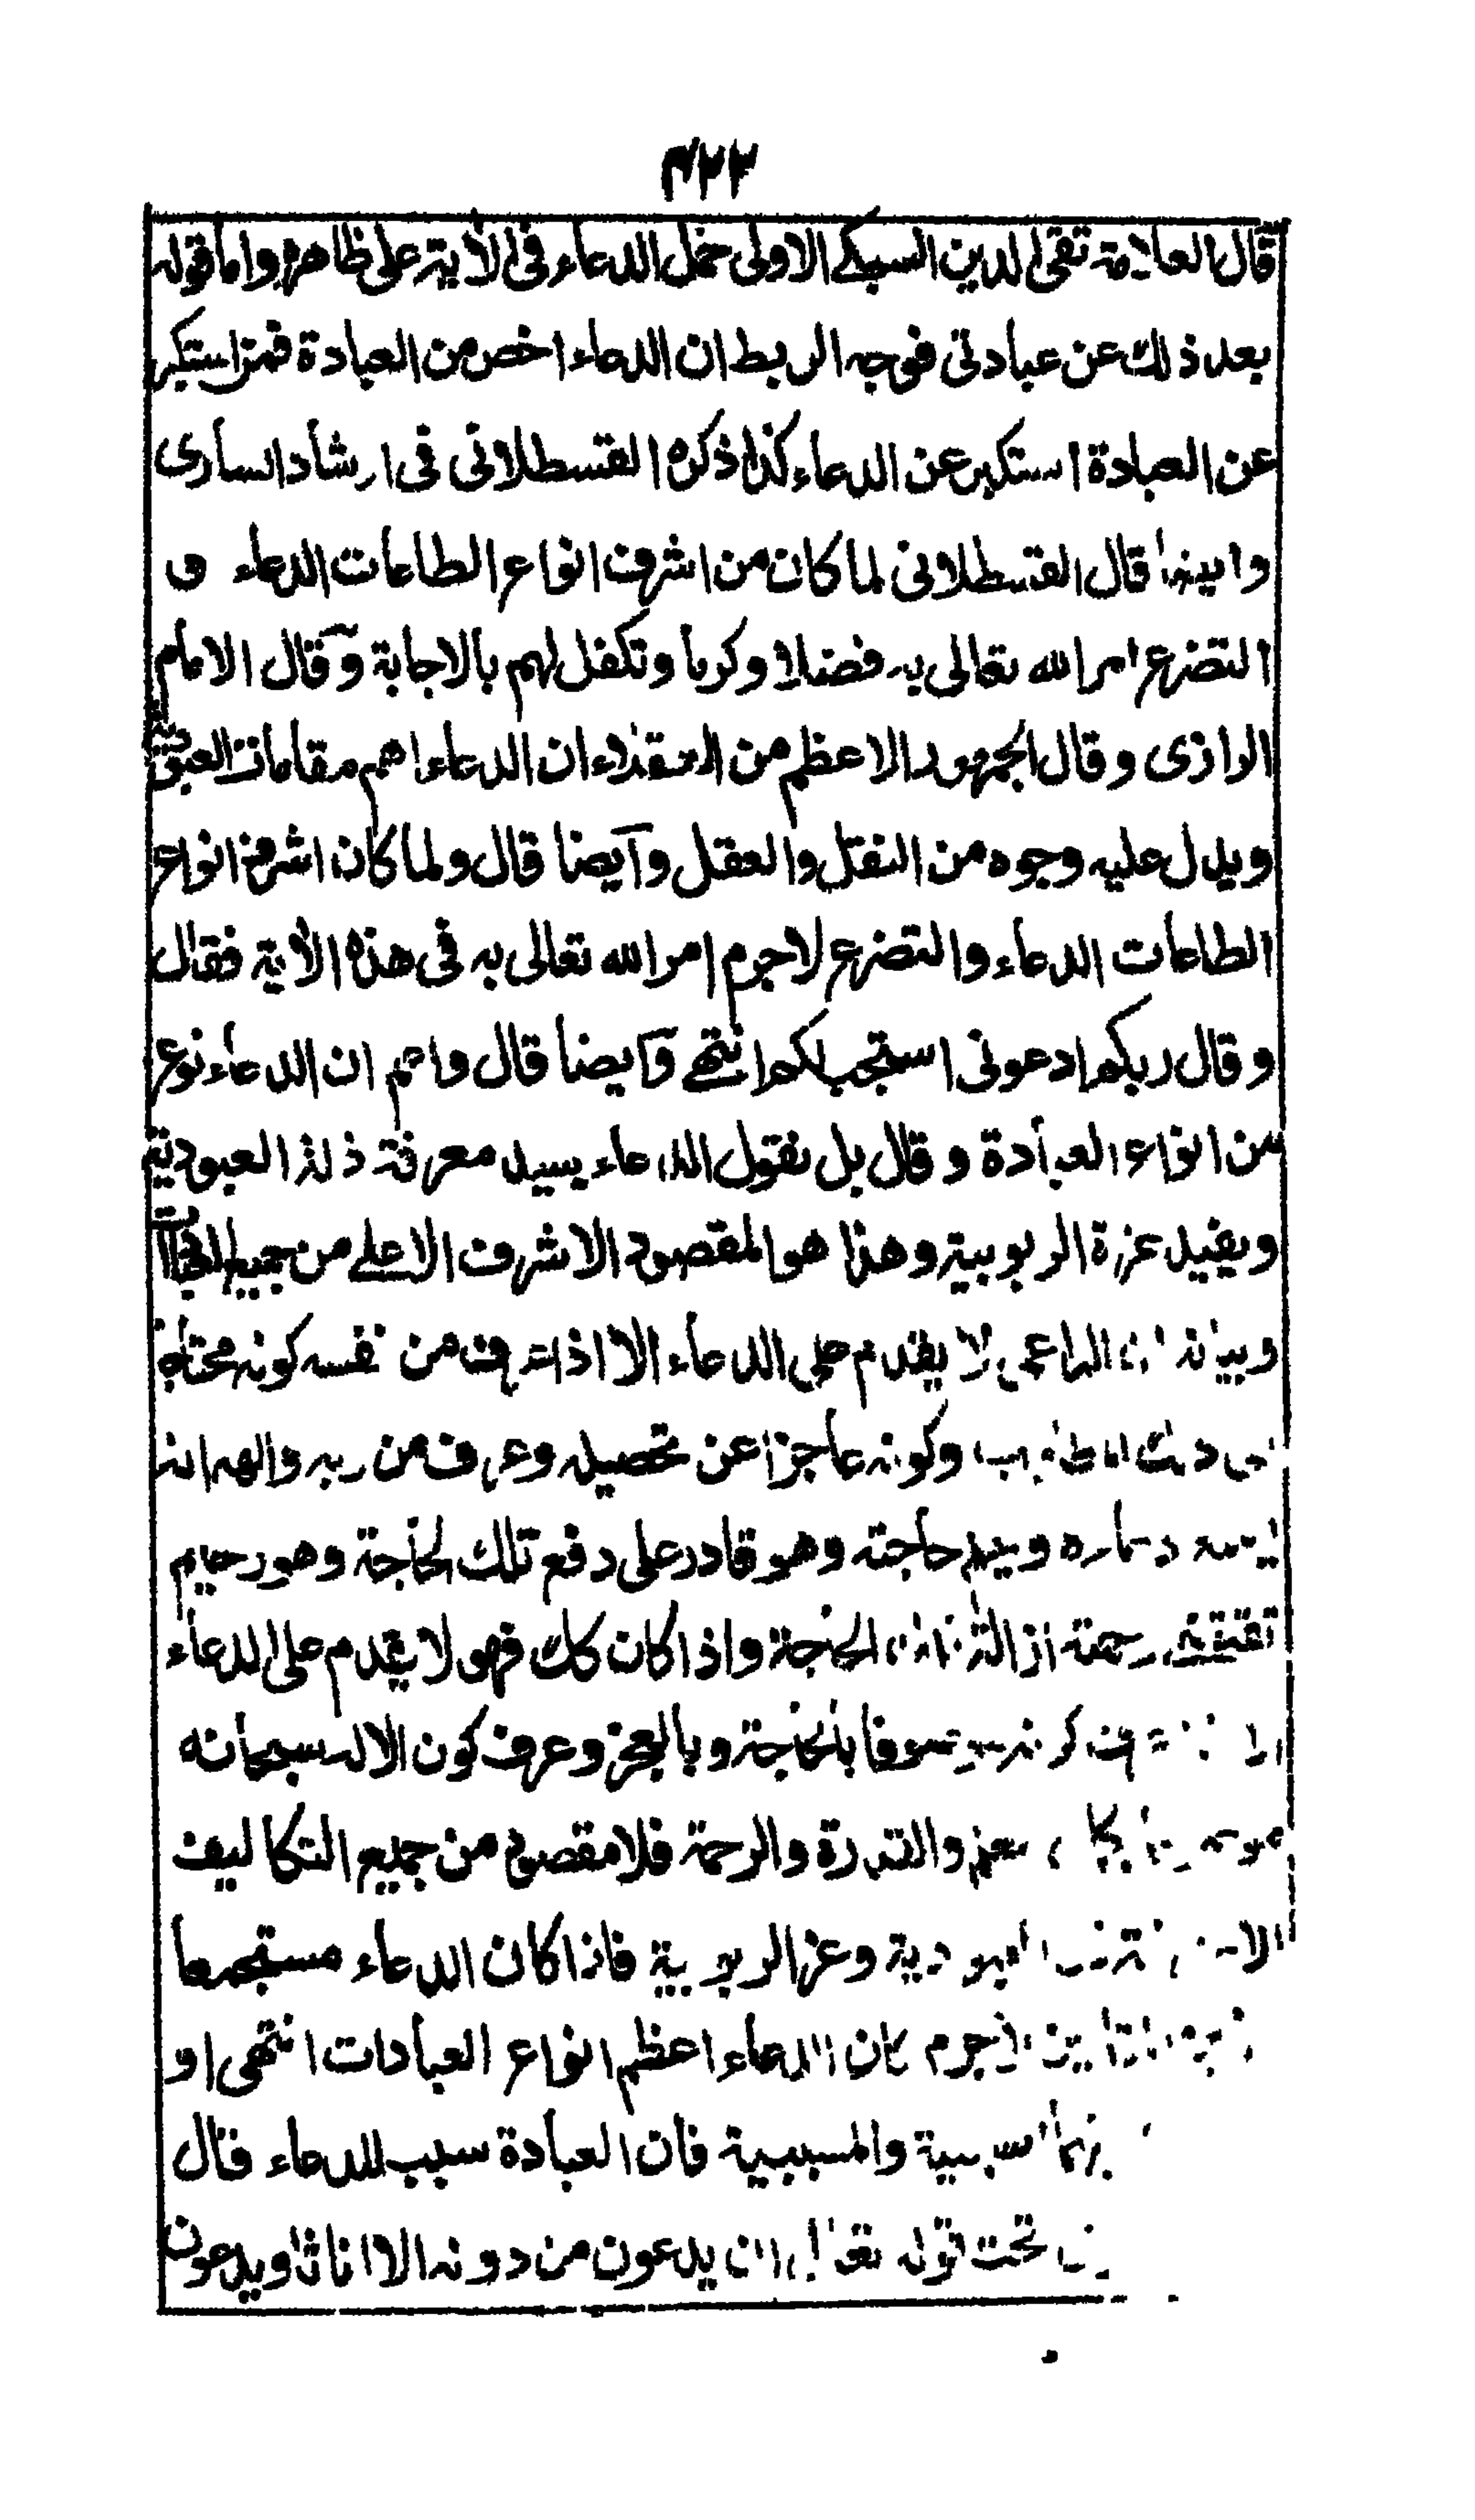 ٣٢٢
قال العلامة تقی الدین السبکی الاولی حمل الدعاء فی الآیة علی ظاهرہ واما قوله
بعد ذلك عن عبادتی فوجه الربط ان الدعاء اخص من العبادة فمن استکبر
عن العبادة استکبر عن الدعاء کذا ذکرہ القسطلانی فی ارشاد الساری
وایضا قال القسطلانی لما کان من اشرف انواع الطاعات الدعاء و
التضرع امر الله تعالی به فضلا وکرما وتکفل لهم بالاجابة وقال الامام
الرازی وقال الجمهور الاعظم من العقلاء ان الدعاء اهم مقامات العبودیة
ویدل علیه وجوه من النقل والعقل وایضا قال ولما کان اشرف انواع
الطاعات الدعاء والتضرع لاجرم امر الله تعالی به فی هذه الآیة فقال
وقال ربکم ادعونی استجب لکم انتهی وایضا قال واعلم ان الدعاء نوع
من انواع العبادة وقال بل نقول الدعاء یفید معرفة ذلة العبودیة
ویفید عزة الربوبیة وهذا هو المقصود الاشرف الاعلے من جمیع
وبیانه ان الداعی لا یقدم علی الدعاء الا اذا عرف من نفسه کونه محتاجا
وکونه عاجزا عن تحصیله وعرف من ربه والهه انه
یسمع دعاءه ویعلم حاجته وهو قادر علی دفع تلك الحاجة وهو رحیم
تقتضی رحمته ازالة تلك الحاجة واذا کان کك فهو لا یقدم علی الدعاء
الا کونه موصوفا بالحاجة وبالعجز وعرف کون الاله سبحانه
والقدرة والرحمة فلا مقصود من جمیع التکالیف
الا العبودیة وعز الربوبیة فاذا کان الدعاء مستجمعا
لاجرم کان الدعاء اعظم انواع العبادات انتهی او
السببیة والمسببیة فان العبادة سبب للدعاء قال
تحت قوله تعالی ان یدعون من دونه الا اناثا ویدعون